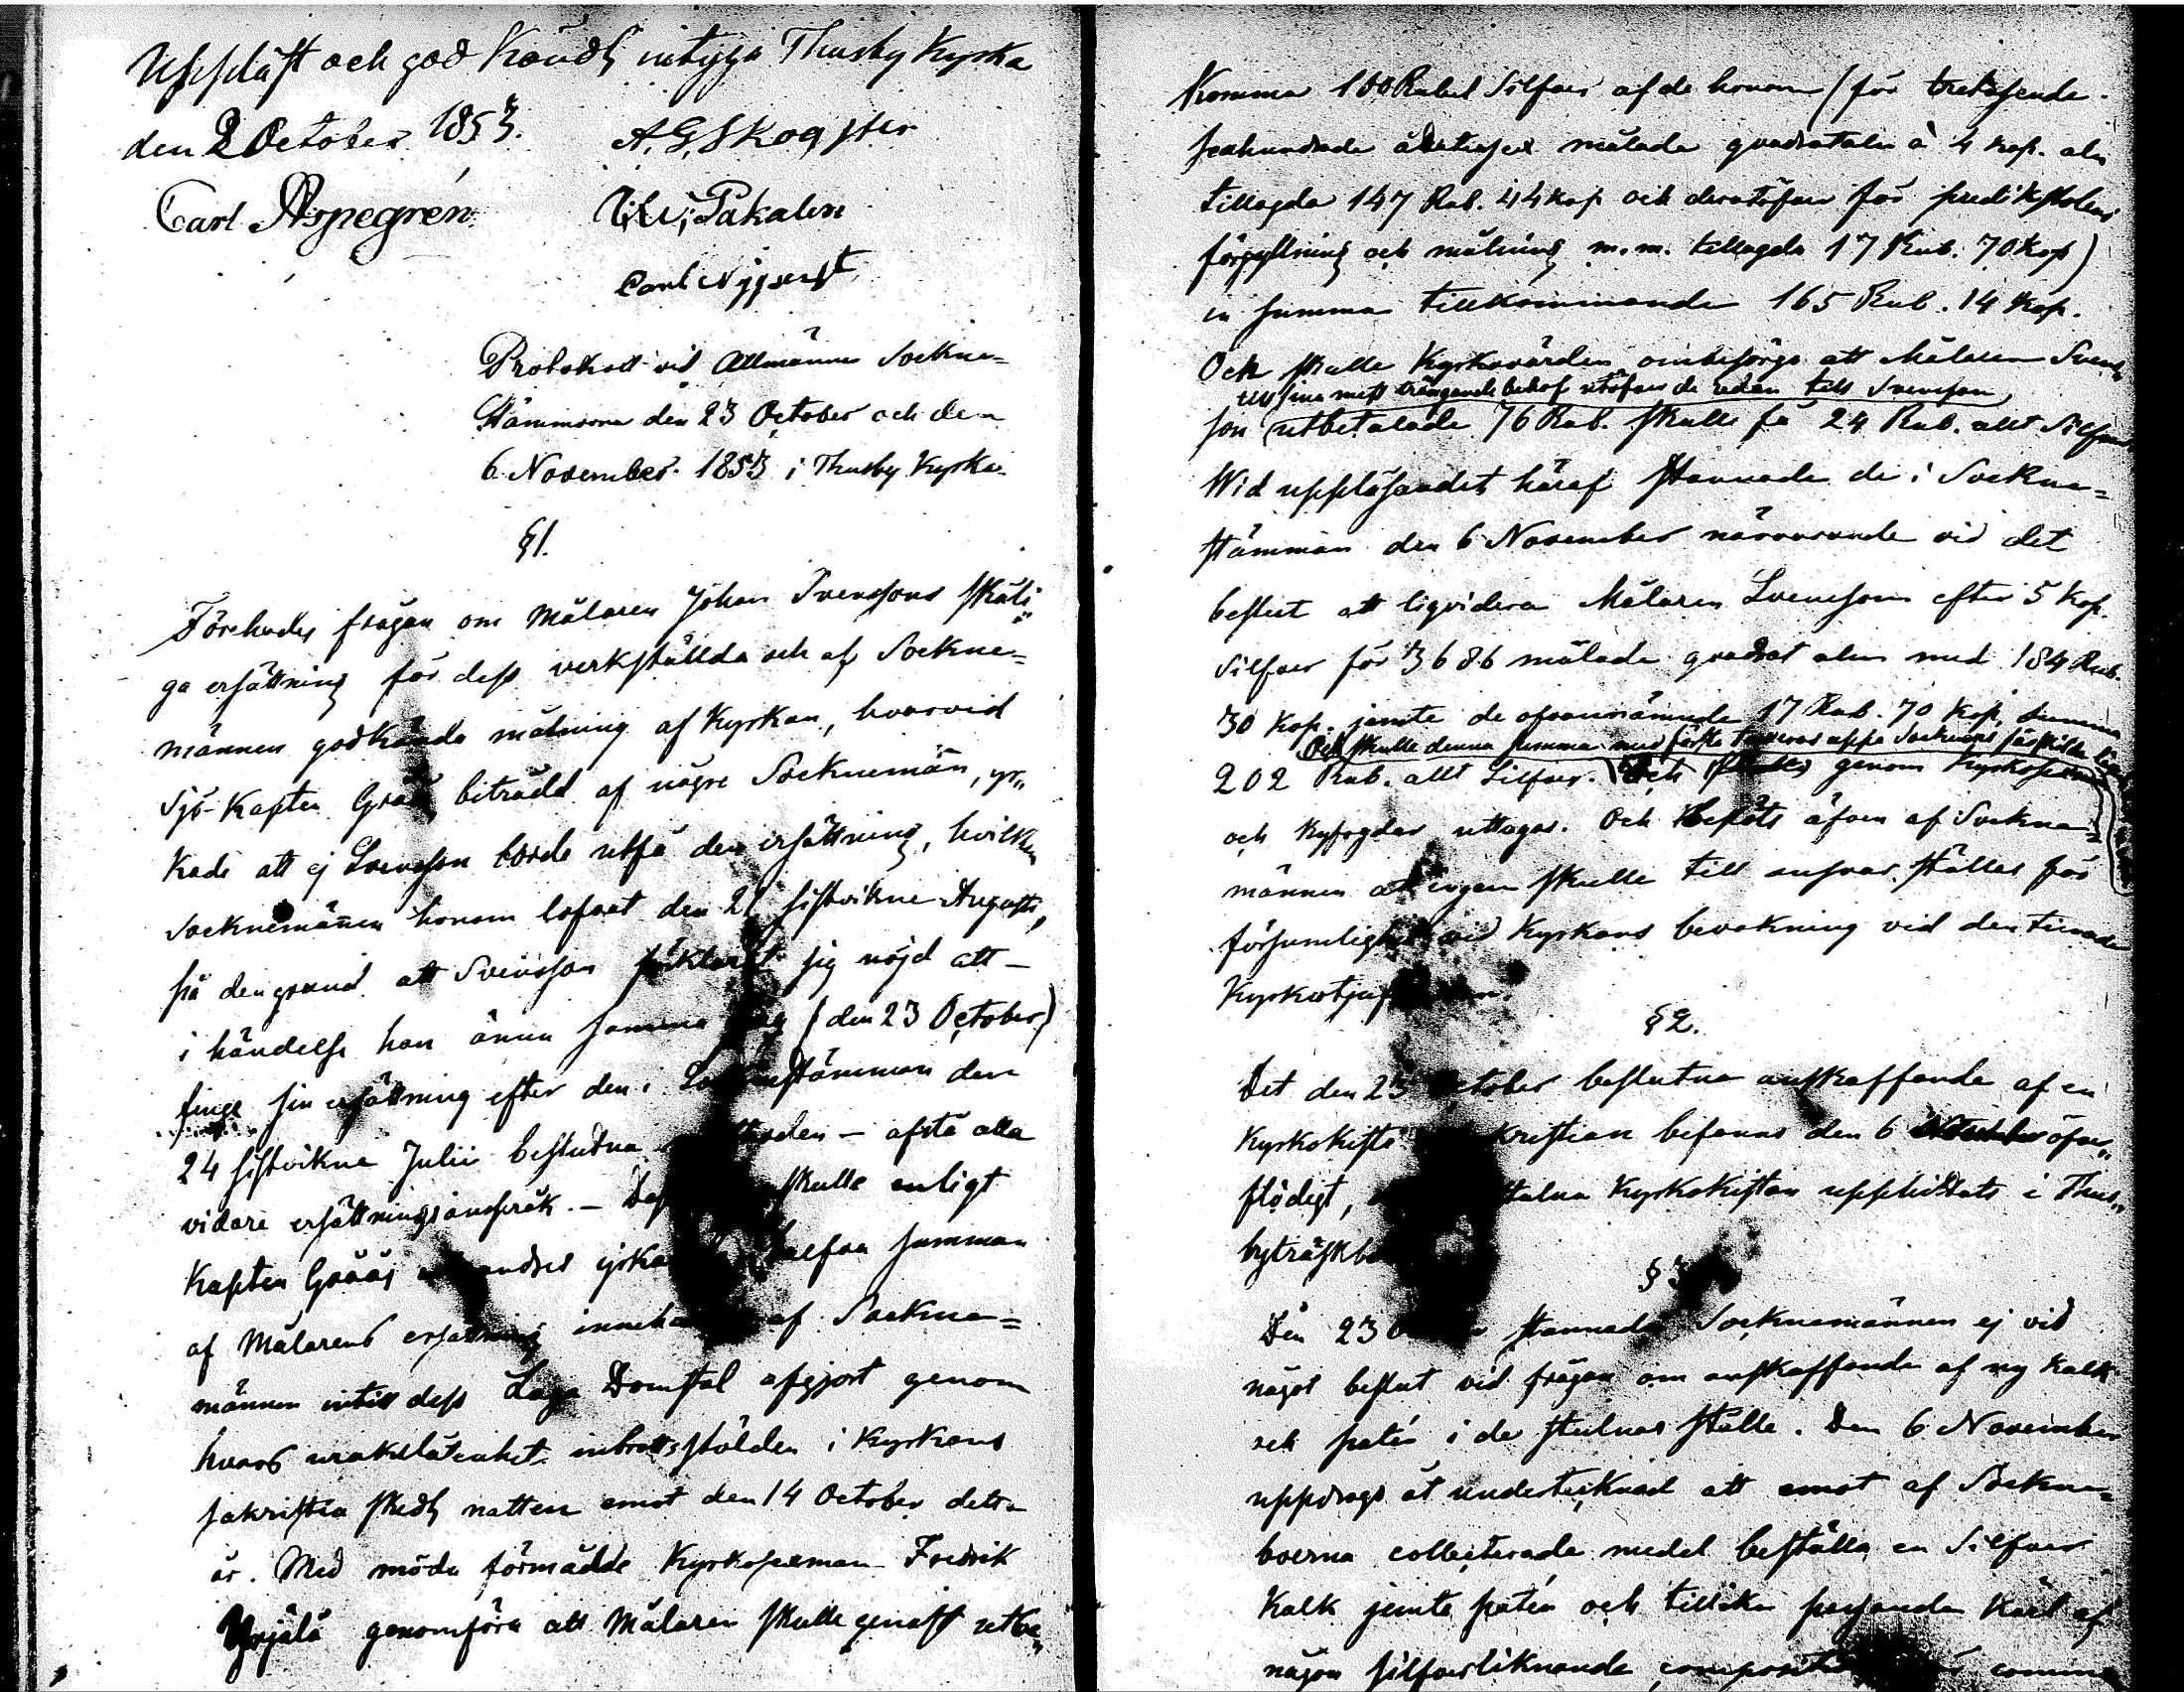 Uppläst och god känd, intyga Thusby Kyrka
den 2 October 1853. A. G. Skogster
Carl Aspegrén. Pakalen
Carl Nyqvist
Protokoll vid Allmänna Sockne=
Stämmorna den 23 October och den
6 November 1853 i Thusby Kyrka.
§1.
Förehades frågan om Målaren Johan Svenssons skäli„
ga ersättning för dess verkställda och af Sockne=
männen godkända målning af Kyrkan, hvarvid
Sjö-Kapten Grååå biträdd af någre Socknemän, yr„
kade att ej Svensson borde utfå den ersättning, hvilken
Socknemännen honom lofvat den 21 sistvikne Augusti,
på den grund att Svensson förklarat sig nöjd att —
i händelse han ännu samma dag (den 23 October)
finge sin ersättning efter den i Socknestämman den
24 sistvikne Julii beslutna — afstå alla
vidare ersättningsanspråk. — skulle enligt
Kapten Grååås yrkande halfva summan
af Målarens ersättning inneha af Sockne=
männen intill dess Laga Domstol afgjort genom
hvars uraktlåtenhet inbrotts stölden i Kyrkans
sakristia skedt natten emot den 14 October detta
år. Med möda förmådde Kyrkosexman Fredrik
Yrjälä genomföra att Målaren skulle genast utbe„
komma 100 Rubel Silfver af de honom (för tretusende
sexhundrade åttatiosex målade quadratalen à 4 kop. aln
tillagda 147 Rub. 44 kop och derutöfver för predikstolens
förgyllning och målning m.m. tillagda 17 Rub. 70 kop)
in summa tillkommande 165 Rub. 14 kop.
Och skulle Kyrkovärden ombesörja att Målaren Svens„
till sina mest trängande behof utöfver de redan till Svensson
son utbetalade 76 Rub. skulle få 24 Rub. allt Silfver.
Wid uppläsandet häraf stannade de i Sockne=
stämman den 6 November närvarande vid det
beslut att liqvidera Målaren Svensson efter 5 kop.
Silfver för 3686 målade quadrat alnar med 184 Rub.
30 kop. jemte de ofvannämnde 17 Rub. 70 kop, summa
Och skulle denna summa med första uppå Socknens särskilda
202 Rub. allt Silfver. genom Kyrkosexmän
och Byfogdar uttagas. Och beslöts äfven af Sockne=
männen att ingen skulle till ansvar ställas för
försumlighet vid Kyrkans bevakning vid den timade
Kyrkostjuf
§2.
Det den 23 October beslutna anskaffande af en
Kyrkokista kristian befanns den 6 November öfver„
flödigt, stulna Kyrkokistan upphittats i Thus„
byträsk
§3
Den 23 October stannade Socknemännen ej vid
något beslut vid frågan om anskaffande af ny kalk
och patén i de stulnas ställe. Den 6 November
uppdrogs åt undertecknad att emot af Sockne=
boerna collecterade medel beställa en Silfver
Kalk jemte patén och tillika passande kärl af
någon silfverliknande composition comm